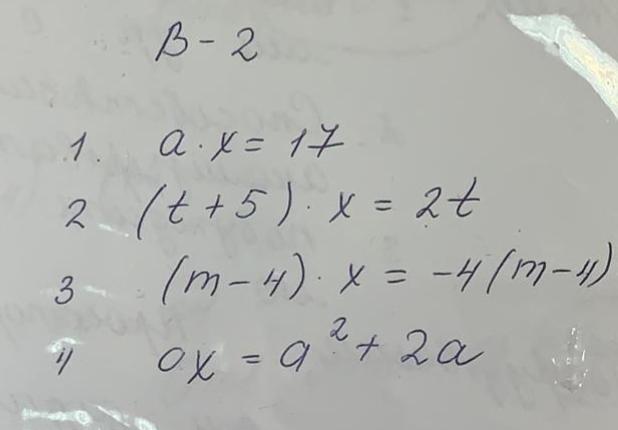 В - 2
1. a · x = 17
2 (t + 5) · x = 2t
3 (m - 4) · x = -4(m - 4)
4 0x = a² + 2a